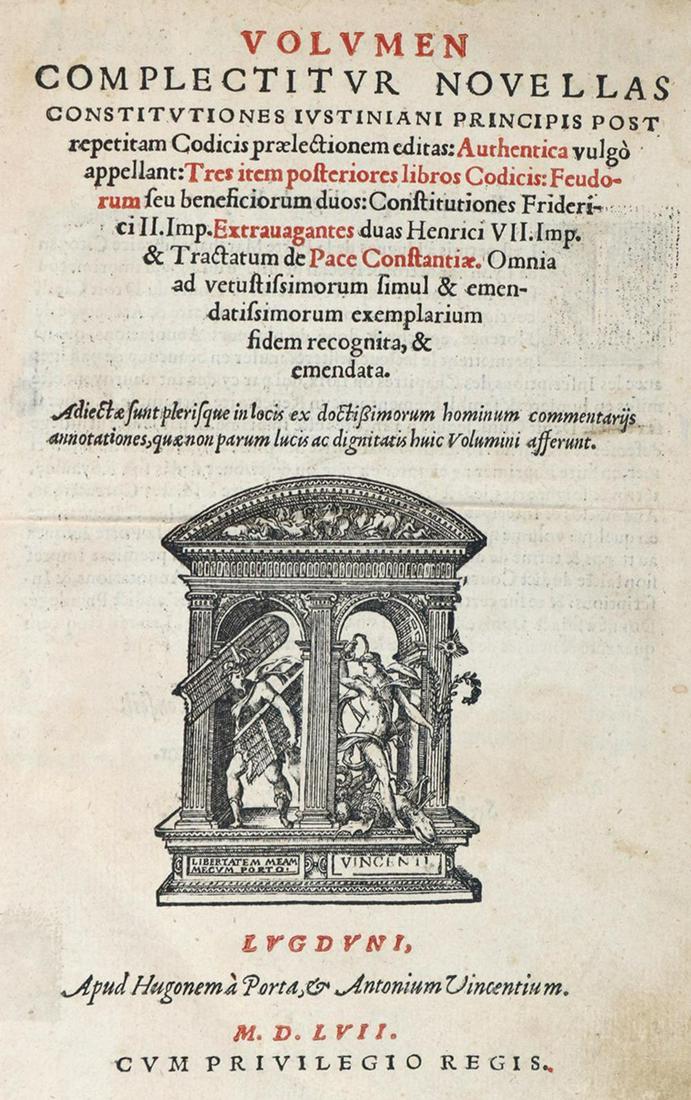 VOLVMEN
COMPLECTITVR NOVELLAS
CONSTITVTIONES IVSTINIANI PRINCIPIS POST
repetitam Codicis prælectionem editas: Authentica vulgò
appellant: Tres item posteriores libros Codicis: Feudo-
rum seu beneficiorum duos: Constitutiones Frideri-
ci II. Imp. Extrauagantes duas Henrici VII. Imp.
& Tractatum de Pace Constantiæ. Omnia
ad vetustissimorum simul & emen-
datissimorum exemplarium
fidem recognita, &
emendata.
Adiectæ sunt plerisque in locis ex doctißimorum hominum commentarijs
annotationes, quæ non parum lucis ac dignitatis huic Volumini afferunt.
LIBERTATEM MEAM
MECVM PORTO.
VINCENTI.
LVGDVNI,
Apud Hugonem à Porta, & Antonium Vincentium.
M. D. LVII.
CVM PRIVILEGIO REGIS.